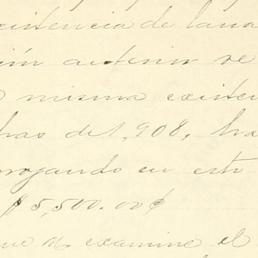 existencia de lana
ión anterior se
misma existen
tras del 1,908, ha
rrogando en esto
$5,500.00¢
que se examine, el